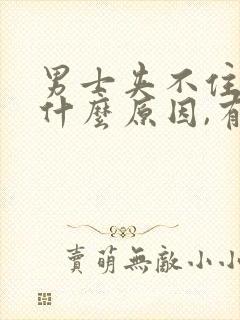 男士夾不住
什麼原因,有
賣萌無敵小小